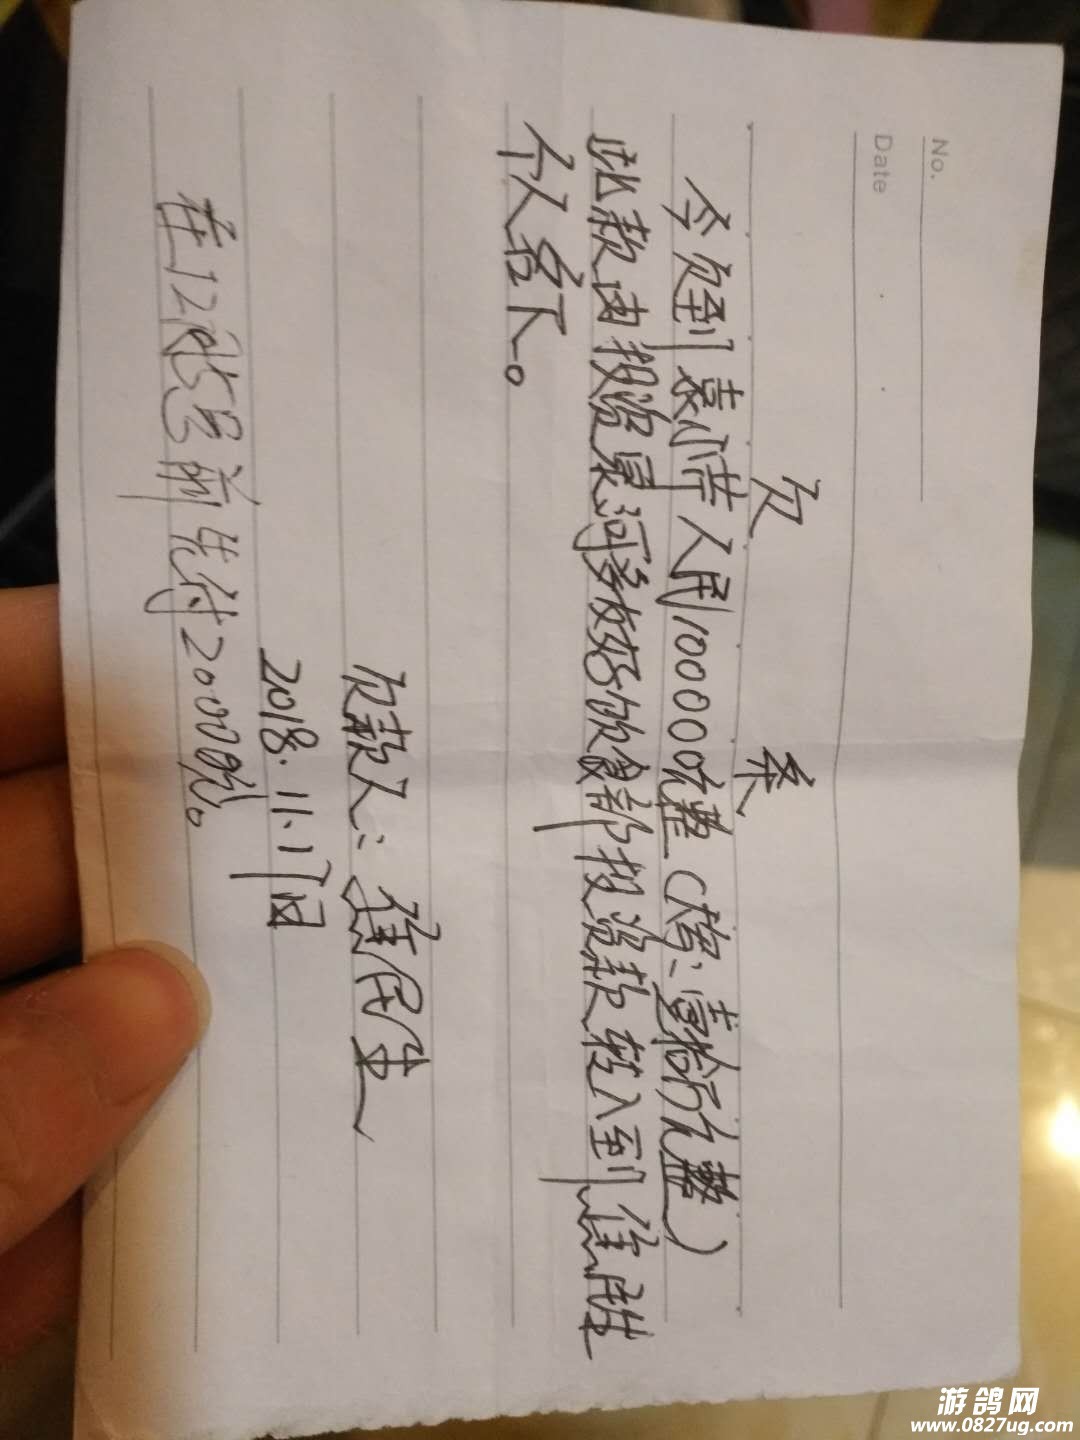 No.
Date
欠 条
今欠到袁小芹人民100000元整(大写:壹拾万元整)
此款由投资景河乡女好好饮食部投资款转入到
个人名下。
欠款人:
2018.11.17日
在12月 号前先付20000元。
游鸽网
www.0827ug.com